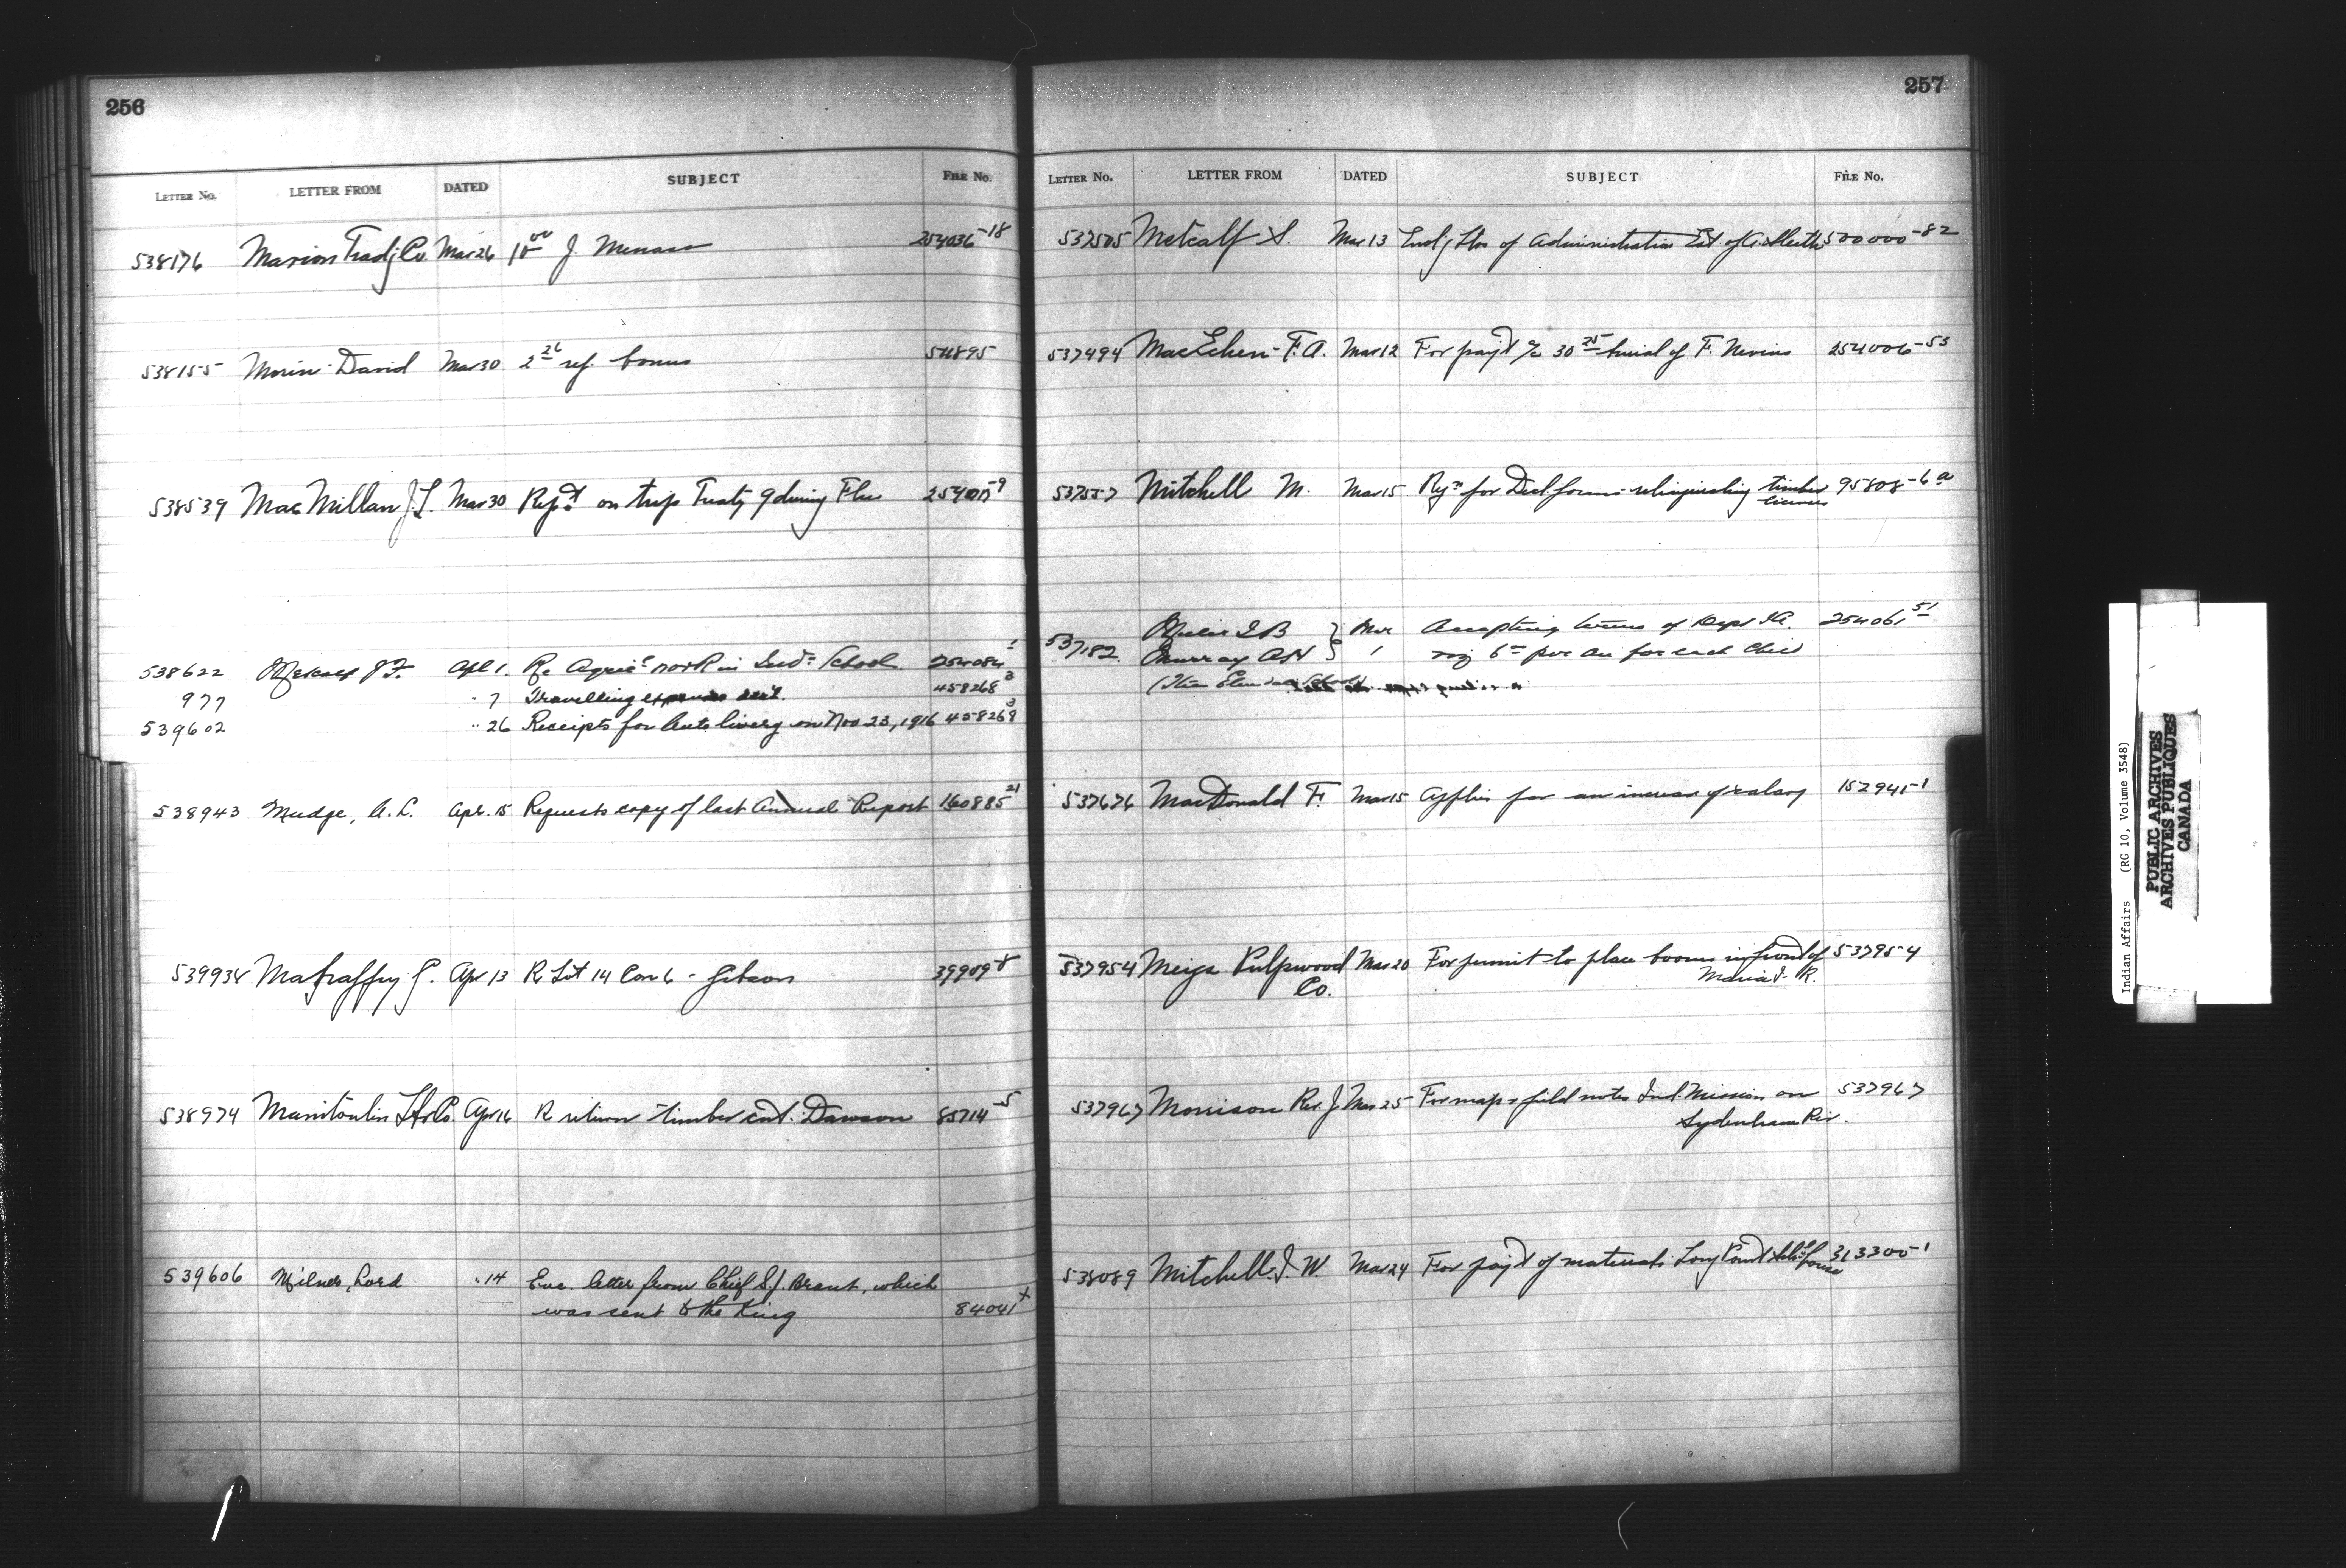 256
LETTER No. LETTER FROM DATED SUBJECT FILE No.
538176 Marion Tradg Co. Mar 26 10 00 J. Menass 254036-18
538155 Morin David Mar 30 2 26 ref. bonus
538539 MacMillan J.L. Mar 30 Rept on trip Treaty 9 during Flu
538622 Apl 1. Re Agricl work in Indn School 254084
977 " 7 Travelling 458268 3
539602 " 26 Receipts for Auto livery on Nov 23, 1916 458268 3
538943 Mudge, A.L. Apr. 15 Requests copy of last Annual Report 160885 21
539934 G. Apr 13 Re Lot 14 Con 6 - Gibson
538974 Manitoulin Lbr Co. Apr 16 Re return timber cut. Dawson 85714-5
539606 Milner, Lord " 14 Enc. letter from Chief S.J. Brant, which
was sent to the King 84041 +
257
LETTER No. LETTER FROM DATED SUBJECT FILE No.
537505 Metcalf S. Mar 13 of Administration Est. of 500000-82
537494 MacEchen F.A. Mar 12 For payt a/c 30 75 burial of F. Nevins 254006-53
Mitchell M. Mar 15 for forms relinquishing timber 95808-6a
licenses
537182 Mar Accepting terms of Dept 254061 51
Murray 1 6 per an for each
537626 MacDonald F. Mar 15 Applies for an increase of salary
537954 Meiga Pulpwood Mar 20 For permit to place booms in front of 537954
Co. Maria I. R.
537967 Morrison Rev J. Mar 25 For map & field notes Ind. Mission on 537967
Sydenham Riv.
538089 Mitchell J. W. Mar 24 For payt of materials 313300-1
Indian Affairs (RG 10, Volume 3548)
PUBLIC ARCHIVES
ARCHIVES PUBLIQUES
CANADA